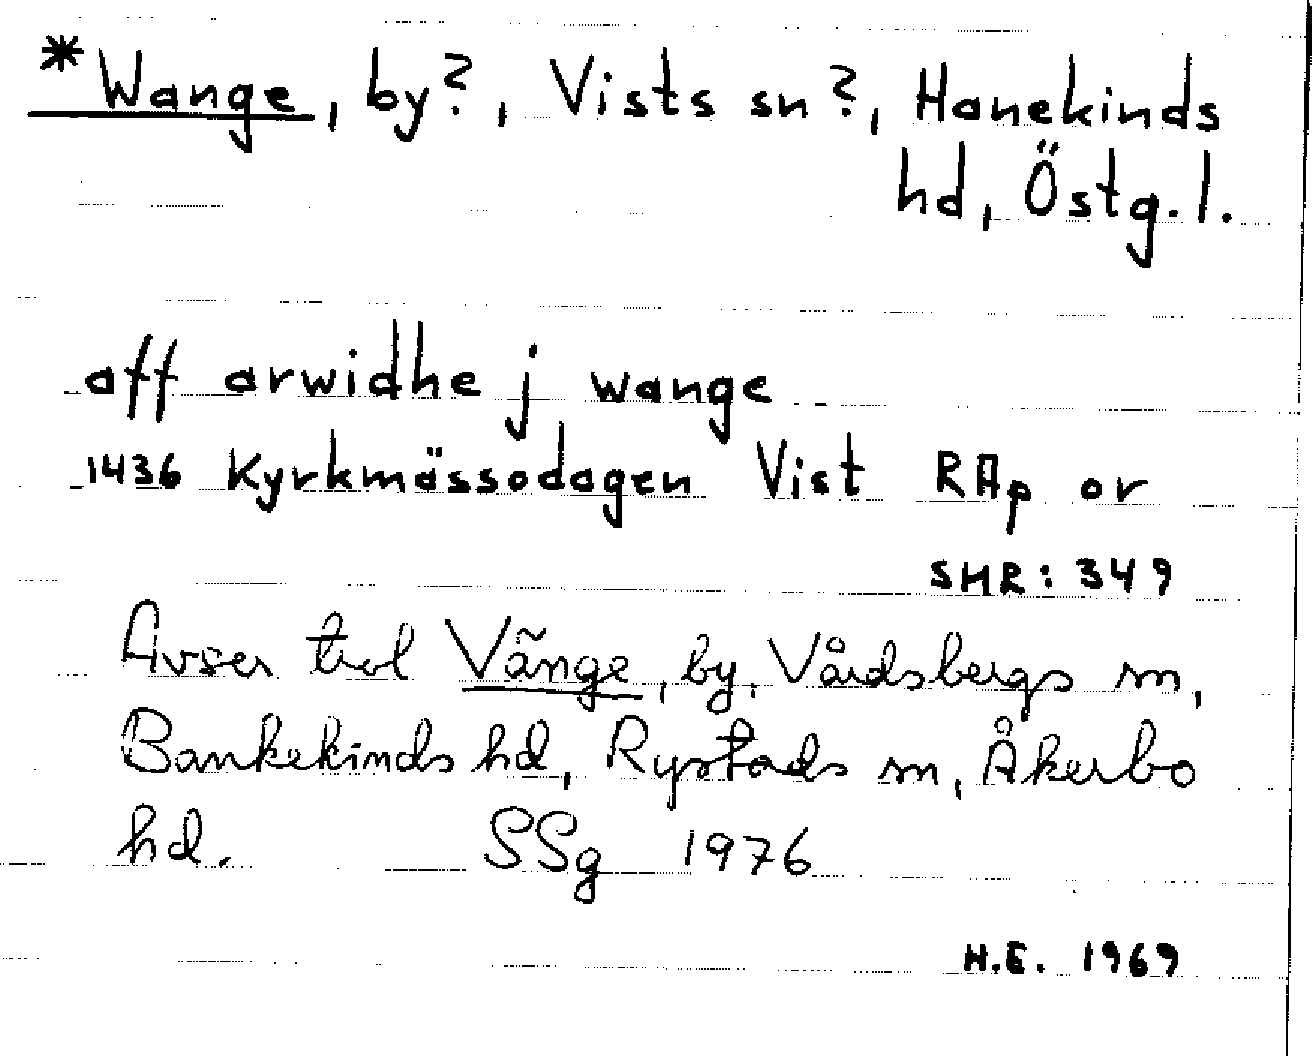 * Wange, by?, Vists sn?, Hanekinds
hd, Östg.l.
aff arwidhe j wange
1436 Kyrkmässodagen Vist RAp or
SMR: 349
Avser trol Vänge, by, Vårdsbergs sn,
Bankekinds hd, Rystads sn, Åkerbo
hd. SSg 1976
H.E. 1969